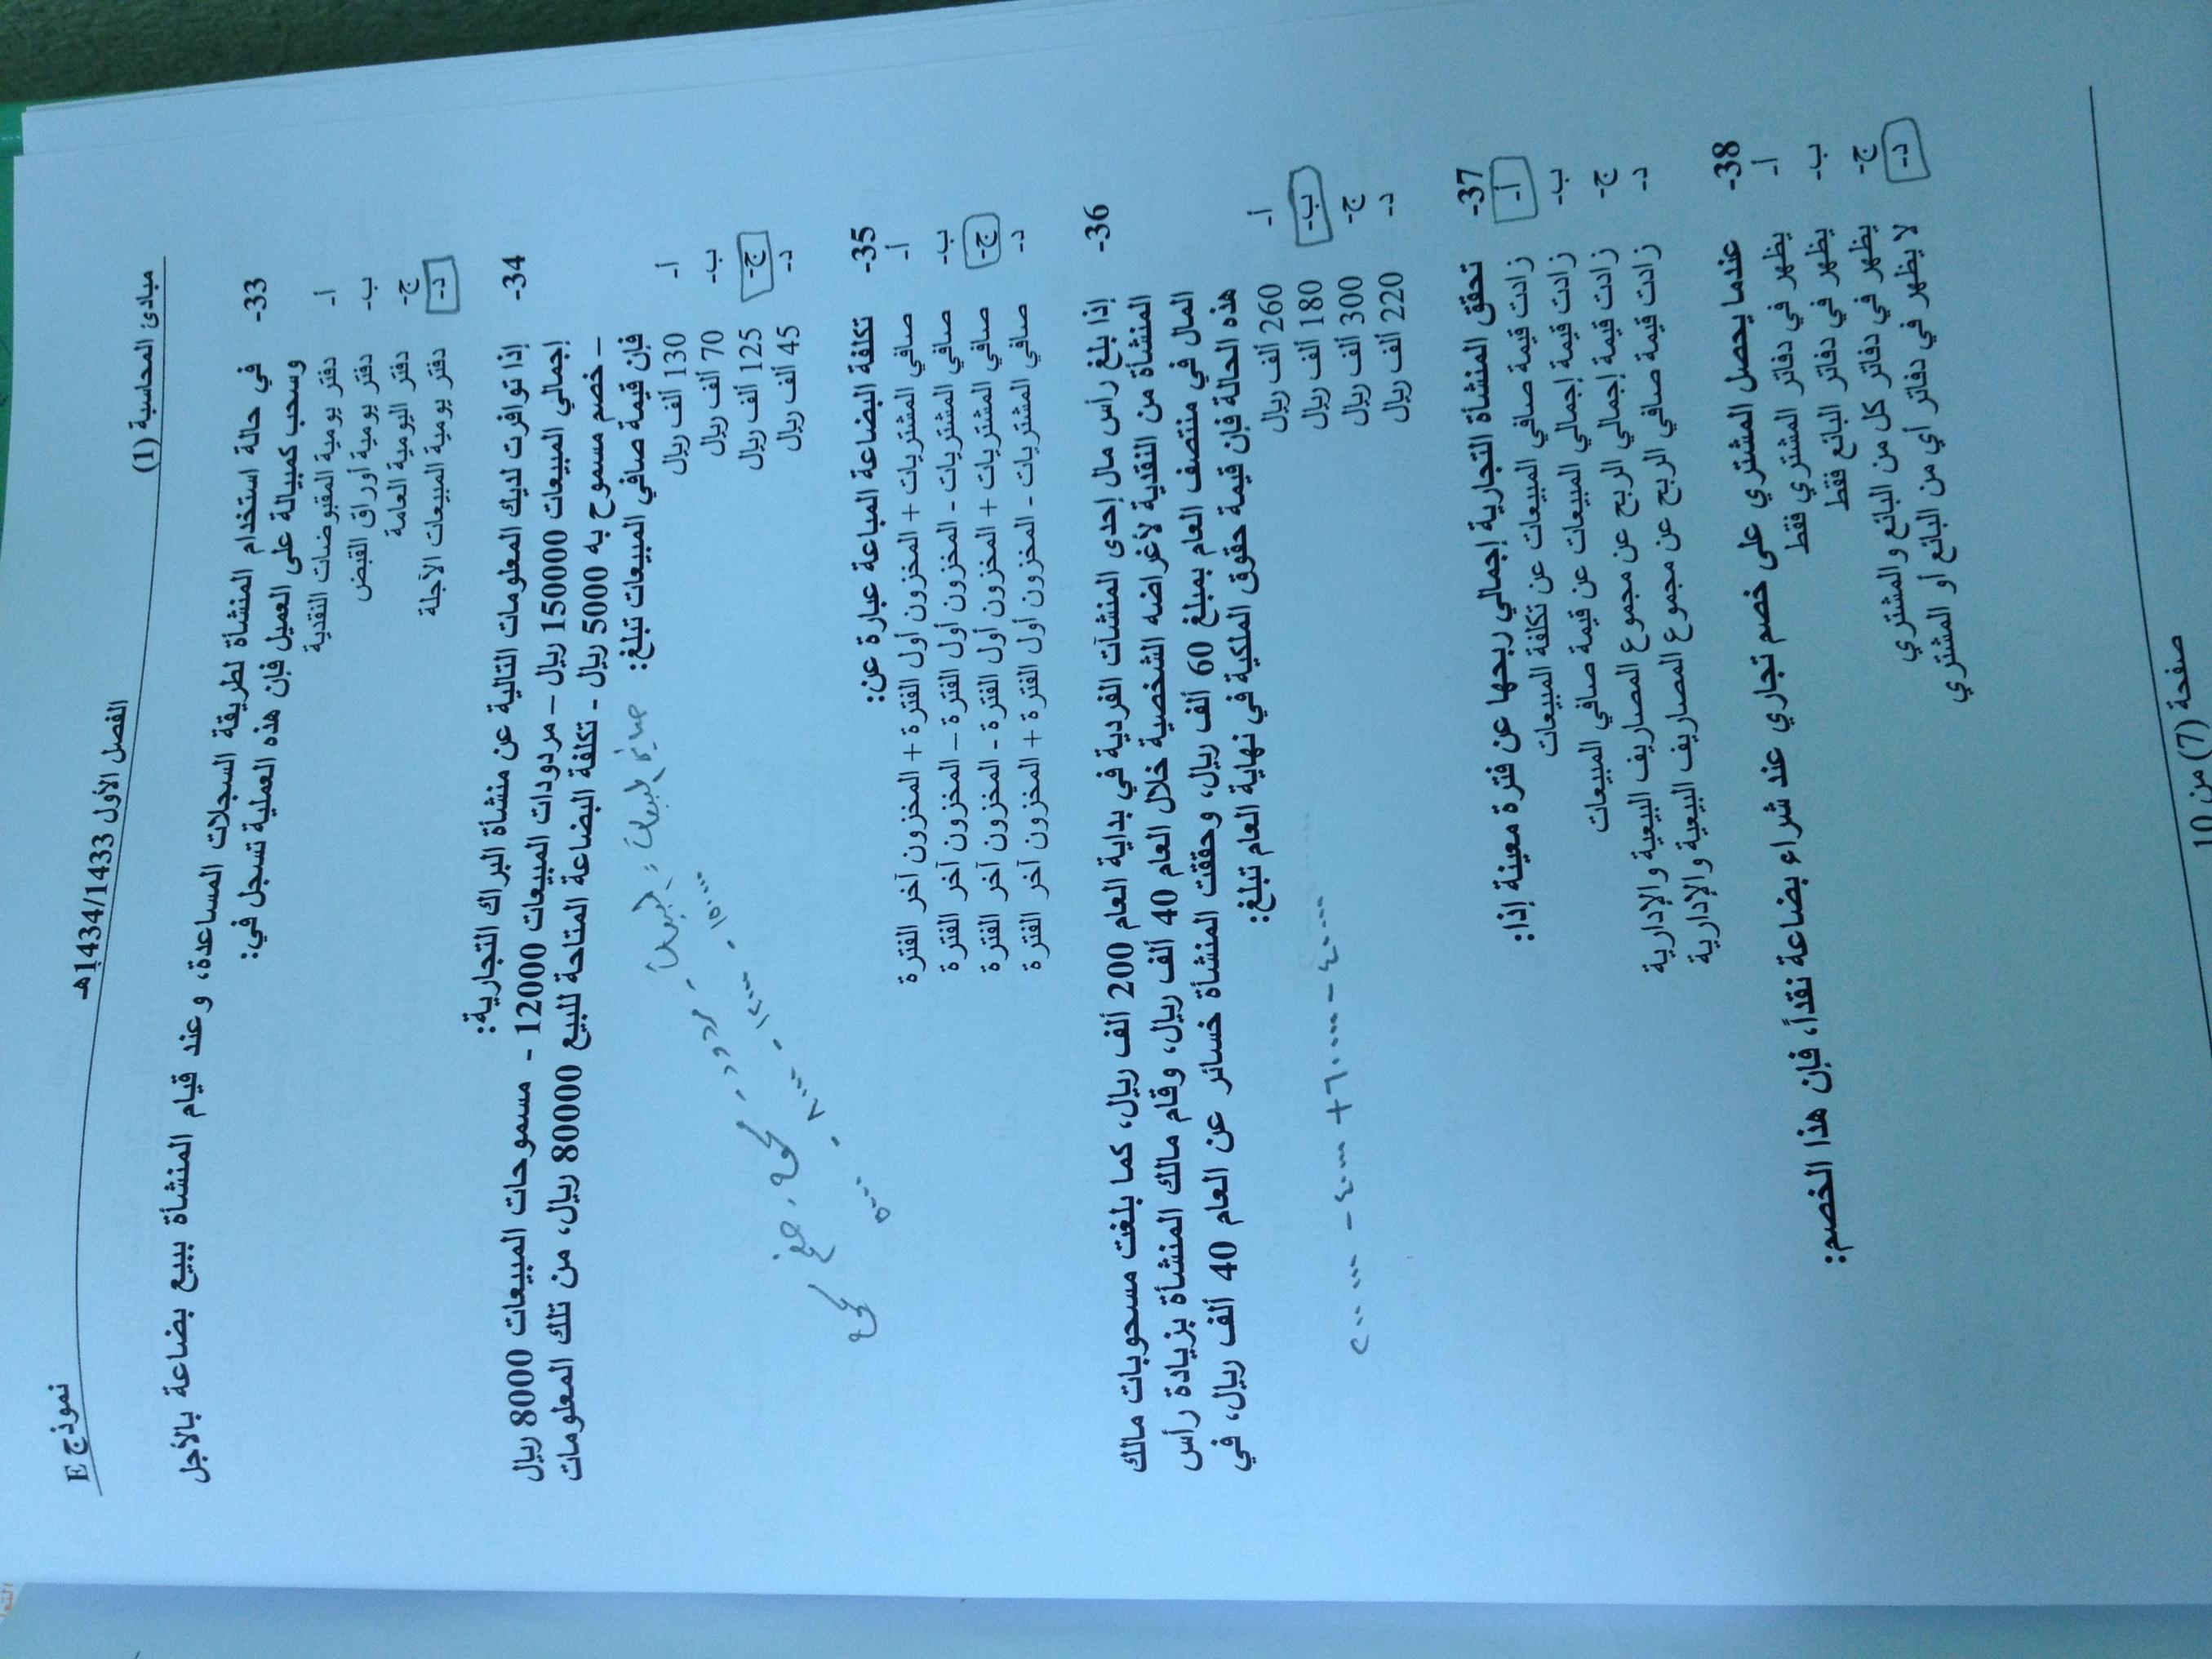 نموذج E
الفصل الأول 1434/1433هـ
مبادئ المحاسبة (1)
33- في حالة استخدام المنشأة لطريقة السجلات المساعدة، وعند قيام المنشأة ببيع بضاعة بالأجل
وسحب كمبيالة على العميل فإن هذه العملية تسجل في:
أ- دفتر يومية المقبوضات النقدية
ب- دفتر يومية أوراق القبض
ج- دفتر اليومية العامة
د- دفتر يومية المبيعات الآجلة
34- إذا توافرت لديك المعلومات التالية عن منشأة البراك التجارية:
إجمالي المبيعات 150000 ريال – مردودات المبيعات 12000 - مسموحات المبيعات 8000 ريال
– خصم مسموح به 5000 ريال - تكلفة البضاعة المتاحة للبيع 80000 ريال، من تلك المعلومات
فإن قيمة صافي المبيعات تبلغ:
صافي المبيعات = المبيعات - مردود -
أ- 130 ألف ريال
ب- 70 ألف ريال
ج- 125 ألف ريال
د- 45 ألف ريال
١٥٠٠٠٠ - ١٢٠٠٠ - ٨٠٠٠ -
٥٠٠٠
35- تكلفة البضاعة المباعة عبارة عن:
أ- صافي المشتريات + المخزون أول الفترة + المخزون آخر الفترة
ب- صافي المشتريات - المخزون أول الفترة – المخزون آخر الفترة
ج- صافي المشتريات + المخزون أول الفترة - المخزون آخر الفترة
د- صافي المشتريات - المخزون أول الفترة + المخزون آخر الفترة
36- إذا بلغ رأس مال إحدى المنشآت الفردية في بداية العام 200 ألف ريال، كما بلغت مسحوبات مالك
المنشأة من النقدية لأغراضه الشخصية خلال العام 40 ألف ريال، وقام مالك المنشأة بزيادة رأس
المال في منتصف العام بمبلغ 60 ألف ريال، وحققت المنشأة خسائر عن العام 40 ألف ريال، في
هذه الحالة فإن قيمة حقوق الملكية في نهاية العام تبلغ:
أ- 260 ألف ريال
ب- 180 ألف ريال
ج- 300 ألف ريال
د- 220 ألف ريال
٢٠٠٠٠٠ - ٤٠٠٠٠ + ٦٠٠٠٠ - ٤٠٠٠٠
37- تحقق المنشأة التجارية إجمالي ربحها عن فترة معينة إذا:
أ- زادت قيمة صافي المبيعات عن تكلفة المبيعات
ب- زادت قيمة إجمالي المبيعات عن قيمة صافي المبيعات
ج- زادت قيمة إجمالي الربح عن مجموع المصاريف البيعية والإدارية
د- زادت قيمة صافي الربح عن مجموع المصاريف البيعية والإدارية
38- عندما يحصل المشتري على خصم تجاري عند شراء بضاعة نقداً، فإن هذا الخصم:
أ- يظهر في دفاتر المشتري فقط
ب- يظهر في دفاتر البائع فقط
ج- يظهر في دفاتر كل من البائع والمشتري
د- لا يظهر في دفاتر أي من البائع أو المشتري
صفحة (7) من 10